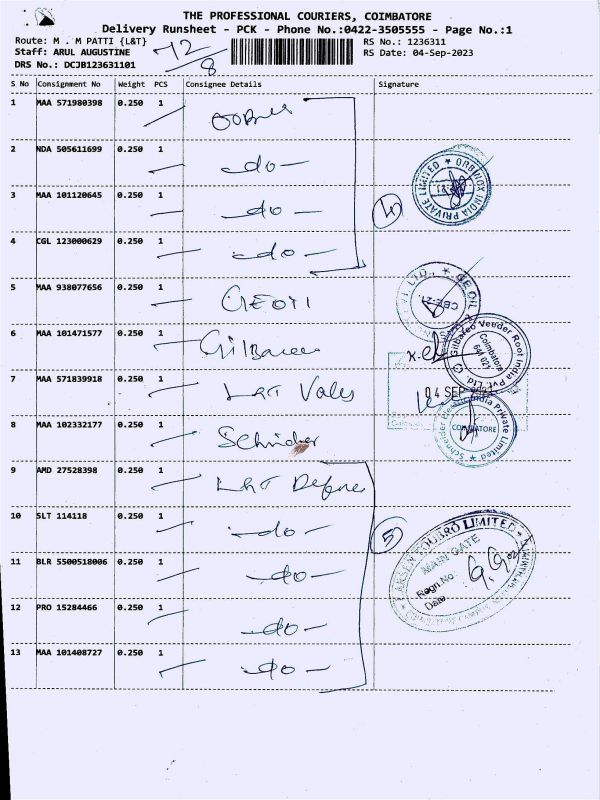 THE PROFESSIONAL COURIERS, COIMBATORE
Delivery Runsheet - PCK - Phone No.:0422-3505555 - Page No.:1
Route: M . M PATTI {L&T}
Staff: ARUL AUGUSTINE
DRS No.: DCJB123631101
12/8
RS No.: 1236311
RS Date: 04-Sep-2023
S No Consignment No Weight PCS Consignee Details Signature
1 MAA 571980398 0.250 1
2 NDA 505611699 0.250 1 -do-
3 MAA 101120645 0.250 1 -do-
4 CGL 123000629 0.250 1 -do-
4
ORBINOX INDIA PRIVATE LIMITED
5 MAA 938077656 0.250 1
6 MAA 101471577 0.250 1
Gilbarco Veeder Root India Pvt. Ltd.
Coimbatore
641 021
7 MAA 571839918 0.250 1 L&T Valves
04 SEP
8 MAA 102332177 0.250 1
Schneider Electric India Private Limited
COIMBATORE
9 AMD 27528398 0.250 1 L&T Defence
10 SLT 114118 0.250 1 -do-
5
LARSEN & TOUBRO LIMITED
MAIN GATE
Regn.No.
Date
11 BLR 5500518006 0.250 1 -do-
12 PRO 15284466 0.250 1 -do-
13 MAA 101408727 0.250 1 -do-